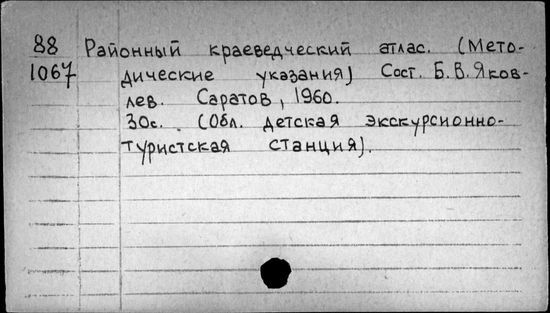 88 Районный краеведческий атлас. (Мето-
1067 дические указания) Сост. Б.В.Яков-
лев. Саратов, 1960.
30с. (Обл. детская экскурсионно-
туристская станция).